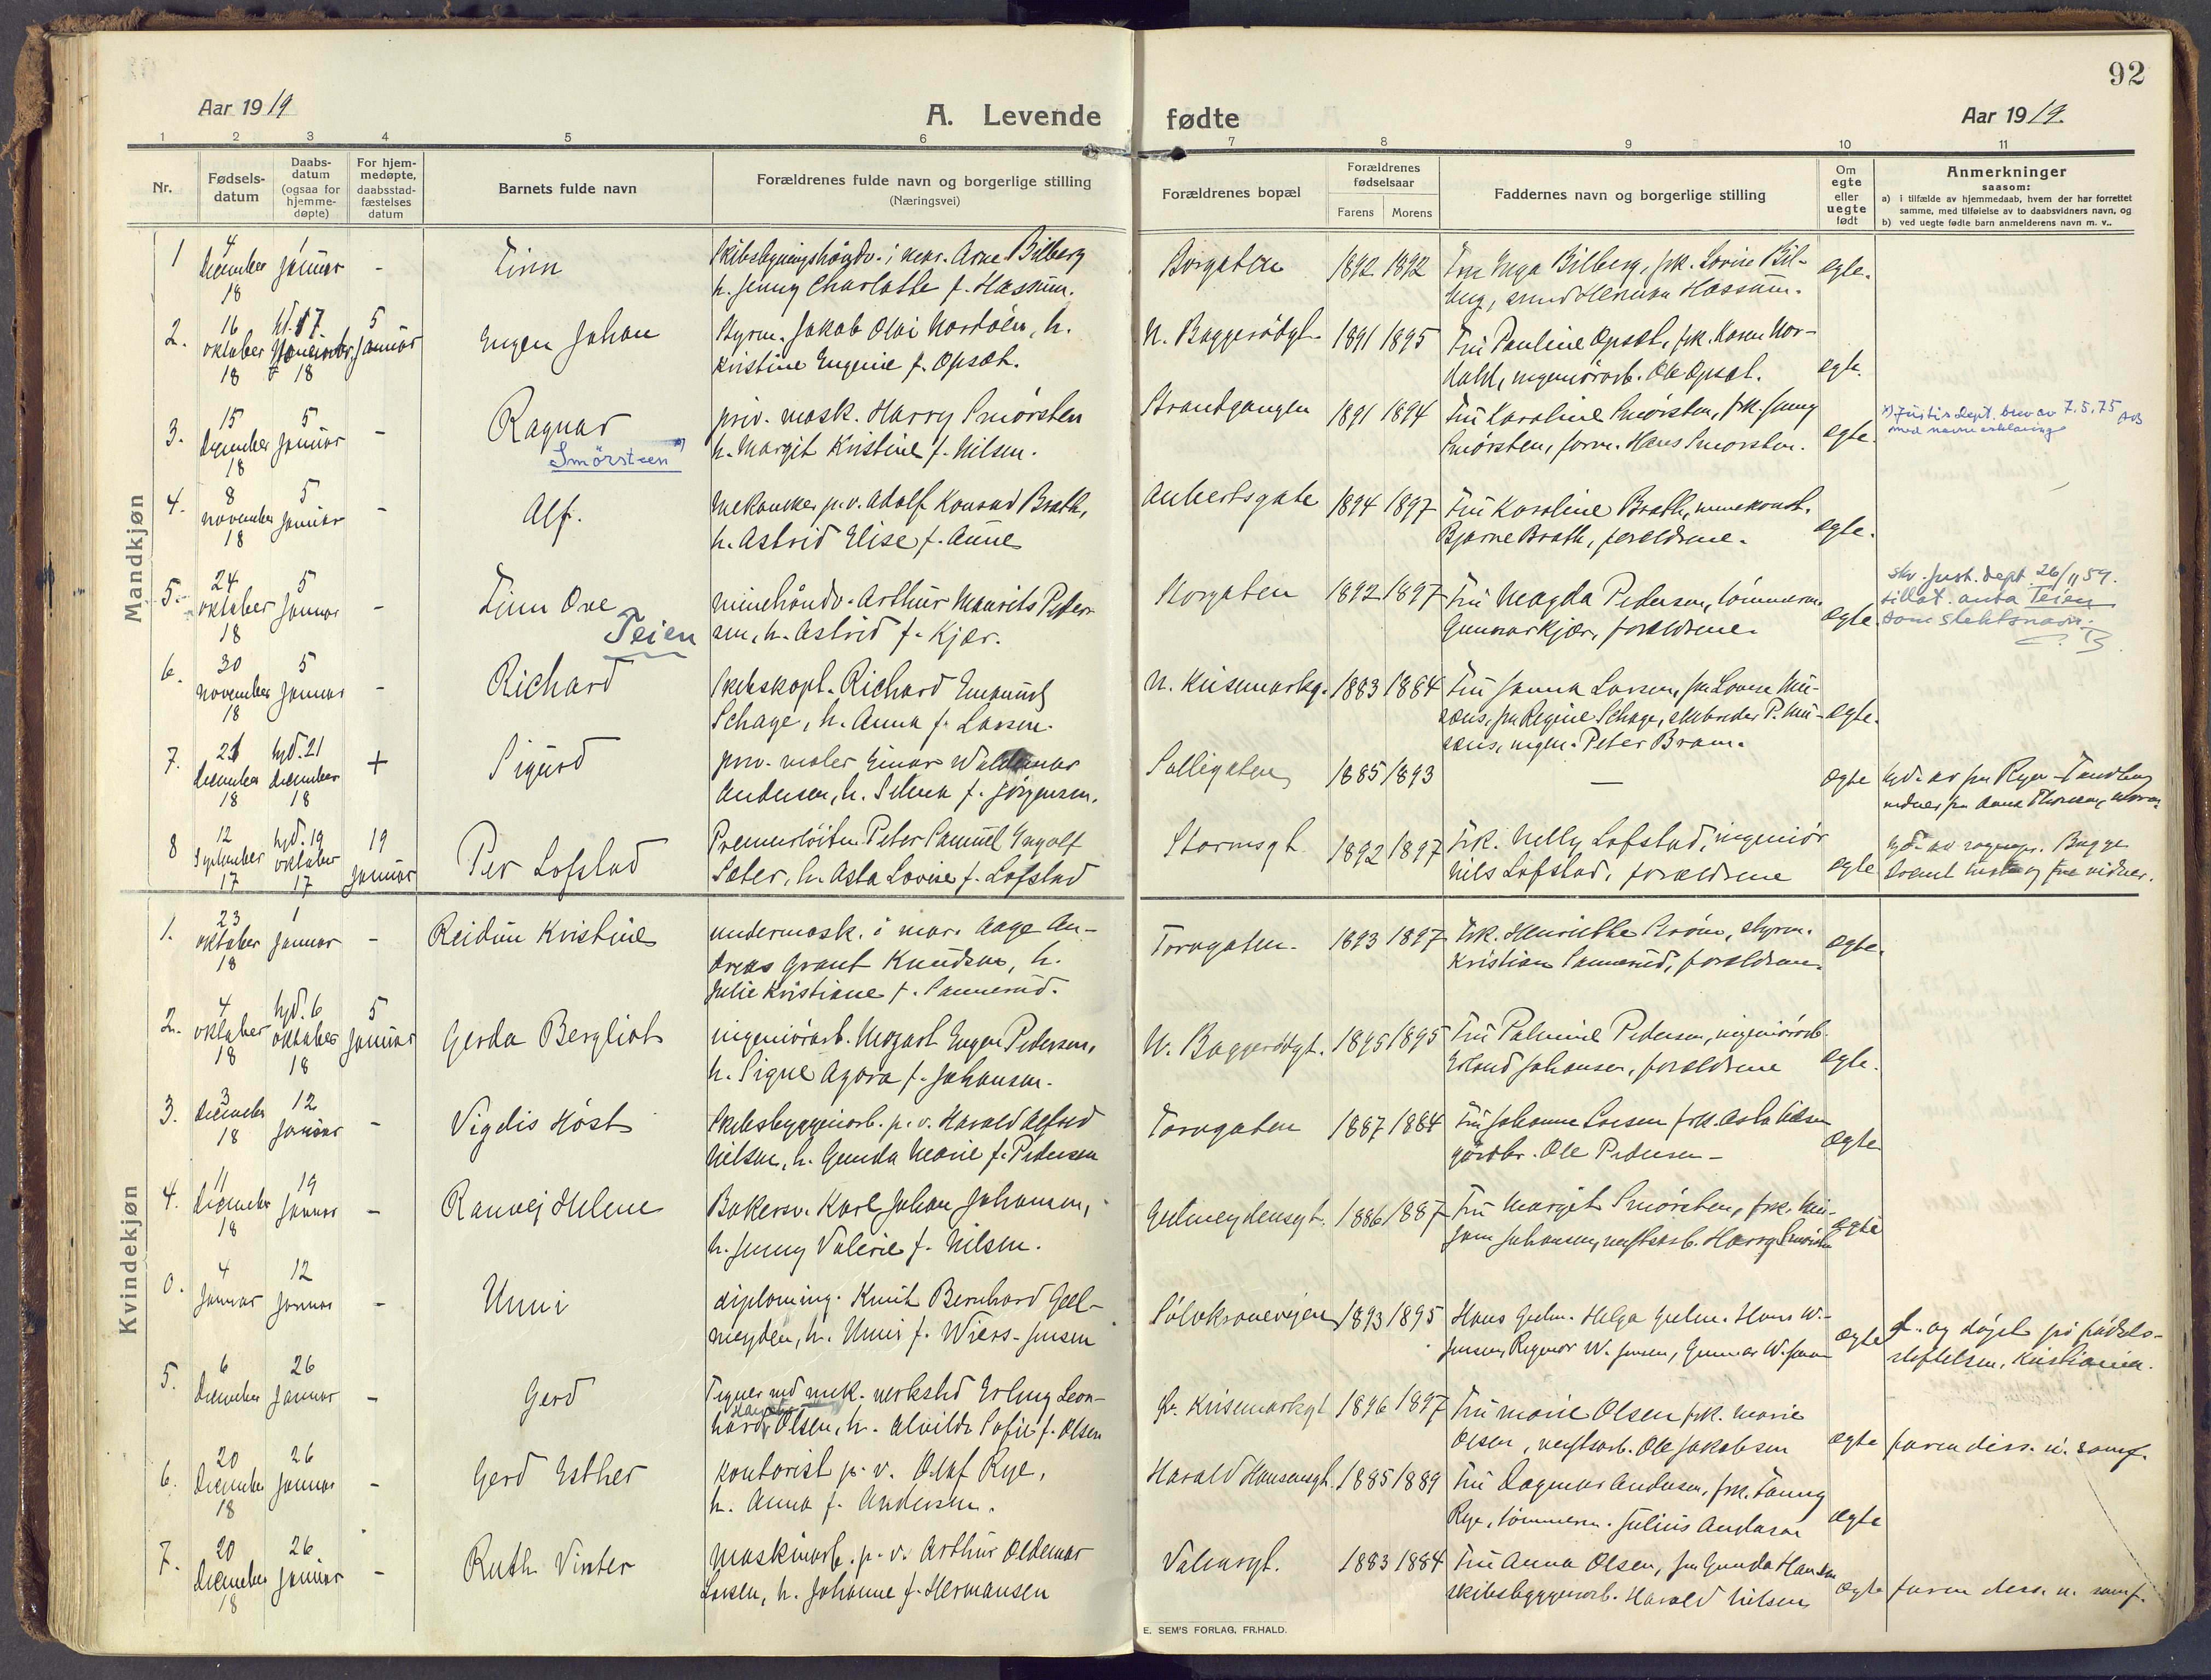 92
Aar 1919
A. Levende fødte
Aar 1919.
1 2 3 4 5 6 7 8 9 10 11
Nr.
Fødsels-
datum
Daabs-
datum
(ogsaa for
hjemme-
døpte)
For hjem-
medøpte,
daabsstad-
fæstelses
datum
Barnets fulde navn
Forældrenes fulde navn og borgerlige stilling
(Næringsvei)
Forældrenes bopæl
Forældrenes
fødselsaar
Farens Morens
Faddernes navn og borgerlige stilling
Om
egte
eller
uegte
født
Anmerkninger
saasom:
a) i tilfælde av hjemmedaab, hvem der har forrettet
samme, med tilføielse av to daabsvidners navn, og
b) ved uegte fødte barn anmelderens navn m. v..
Mandkjøn
1
4 december 18
1 januar
-
Finn
Skibsbygningshåndv. i mar. Arne Bilberg
h. Jenny Charlotte f. Hassum.
Borgaten
1892 1892
Fru Inga Bilberg, frk. Lovise Bil-
berg, Herman Hassum.
egte.
2.
16 oktober 18
hd. 17 november 18
5 januar
Eugen Johan
Styrm. Jakob Olai Nordølen, h.
Kristine Eugenie f. Opsat.
N. Baggerødgt.
1891 1895
Fru Pauline Opsat, frk. Karen Nor-
dahl, ingeniørarb. Ole Opsat.
egte.
3.
15 december 18
5 januar
-
Ragnar
Smørsteen x)
priv. mask. Harry Smørsten
h. Margit Kristine f. Nilsen.
Strandgangen
1891 1894
Fru Karoline Smørsten, frk. Jenny
Smørsten, form. Hans Smørsten.
egte.
x) Justisdept. brev av 7.5.75
med navneerklæring
4.
8 november 18
5 januar
-
Alf.
Mekaniker p.v. Adolf Konrad Brath,
h. Astrid Elise f. Aune
Aubertsgate
1894 1897
Fru Karoline Brath, minekonst.
Bjarne Brath, forældrene.
egte.
5.
24 oktober 18
5 januar
-
Finn Ove
Teien
minehåndv. Arthur Maurits Peder-
sen, h. Astrid f. Kjær.
Norgaten
1892 1897
Fru Magda Pedersen, tømmerm.
Gunnar Kjær, forældrene.
egte.
skr. just. dept. 26/11 59.
tillat. anta Teien
som slektsnavn.
6.
30 november 18
5 januar
-
Richard
Skibskapt. Richard Emanuel
Schage, h. Anna f. Larsen.
N. Keisemarkg.
1883 1884
Fru Janna Larsen, fru Lovise Mu-
sæus, fru Regine Schage, skibsreder P. Mu-
sæus, ingen. Peter Bram.
egte.
7.
21 december 18
hjd. 21 december 18
+
Sigurd
priv. maler Einar Waldemar
Andersen, h. Selma f. Jørgensen.
Solligaten
1885 1893
—
egte
hjd. av fru Ryer-Tandberg
8
12 september 17
hjd. 19 oktober 17
19 januar
Per Lofstad
Premierløitn. Peter Samuel Ingolf
Sæter, h. Asta Lovise f. Lofstad
Stormsgt.
1892 1897
Frk. Nelly Lofstad, ingeniør
Nils Lofstad, forældrene
egte
hjd. av sognepr. Bugge
Kvindekjøn
1.
23 oktober 18
1 januar
-
Reidun Kristine
undermask. i mar. Aage An-
dreas Grant Knudsen, h.
Julie Kristiane f. Sannerud.
Torvgaten.
1893 1897
Frk. Henriette Krøm, styrm.
Kristian Sannerud, forældrene.
egte.
2.
4 oktober 18
hjd. 6 oktober 18
5 januar
Gerda Bergliot
ingeniørarb. Mozart Eugen Pedersen,
h. Signe Agora f. Johansen.
N. Baggerødgt.
1895 1895
Fru Palmine Pedersen, ingeniørarb.
Erland Johansen, forældrene
egte.
3.
3 december 18
12 januar
-
Vigdis Høst
Skibsbyggeriarb. p.v. Harald Alfred
Nilsen, h. Gunda Marie f. Pedersen
Torvgaten
1887 1884
Fru Johanne Larsen frk. Asta Nilsen
gårdbr. Ole Pedersen -
egte
4.
11 december 18
19 januar
-
Ranvej Helene
Bakersv. Karl Johan Johansen,
h. Jenny Valerie f. Nilsen.
Geelmeydensgt.
1886 1887
Fru Margit Smørsten, frk. Mir-
jam Johansen, verftsarb. Harry Smørsten
egte
0.
4 januar
12 januar
-
Unni
diploming. Knut Bernhard Geel-
meyden, h. Unni f. Wiers-Jensen
Sølvkronevejen
1893 1895
Hans Geelm. Helga Geelm. Hans W.-
Jensen, Ragnar W. Jensen, Gunnar W. Jensen
egte
f. og døpt på fødsels-
stiftelsen, Kristiania.
5.
6 december
26 januar
-
Gerd
Tegner ved mek. verksted Erling Leon-
hard Olsen, h. Alvilde Sofie f. Olsen
Gr. Keisemarkgt
1896 1897
Fru Marie Olsen frk. Marie
Olsen, verftsarb. Ole Jakobsen
egte
faren diss. u. samf.
6.
20 december 18
26 januar
-
Gerd Esther
kontorist p. v. Olaf Rye,
h. Anna f. Andersen.
Harald Hansensgt.
1885 1889
Fru Dagmar Andersen, frk. Fanny
Rye, tømmerm. Julius Andersen
egte
7.
20 december 18
26 januar
-
Ruth Vinter
Maskinarb. p. v. Arthur Oldemar
Larsen, h. Johanne f. Hermansen
Valmsgt.
1883 1884
Fru Anna Olsen, fru Gunda Hansen
skibsbyggeriarb. Harald Nilsen
egte
faren diss. u. samf.
E. SEM'S FORLAG, FR.HALD.